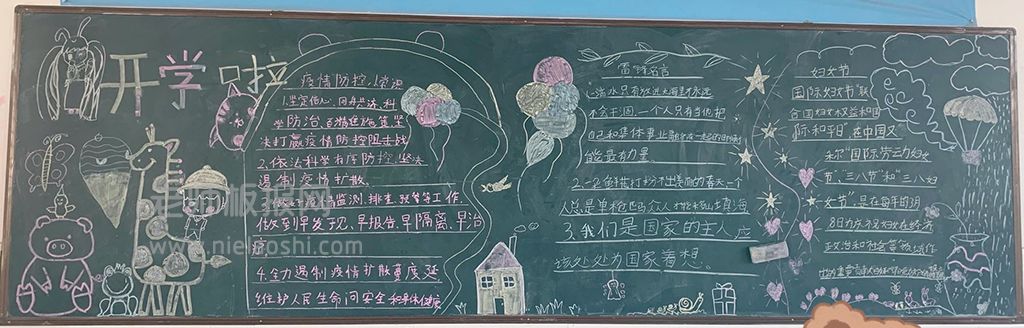 开学啦
疫情防控,坚决
1.坚定信心、同舟共济、科
学防治、
坚
决打赢疫情防控阻击战
2.依法科学有序防控,坚决
遏制疫情扩散。
3.做好疫情监测、排查、预警等工作,
做到早发现、早报告、早隔离、早治
4.全力遏制疫情扩散蔓延
维护人民生命
安全和身体健康
雷锋名言
1.滴水只有放进大海里才永远
不会干涸,一个人只有当他把
自己和集体事业融合在一起的时候才
能最有力量。
2.一朵鲜花打扮不出美丽的春天,一个
人总是单枪匹马,众人才能移山填海
3.我们是国家的主人,应
该处处为国家着想。
妇女节
国际妇女节"联
合国妇女权益和国
际和平日"在中国又
称"国际劳动妇女
节"、"三八节"和"三八妇
女节",是在每年的3月
8日为庆祝妇女在经济
政治和社会等领域作
老师板报网
www.nielaoshi.com